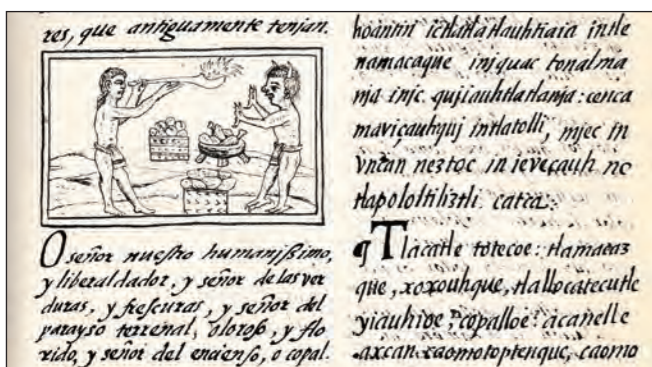 res, que antiguamente tenjan.
O señor nuestro humanissimo,
y liberal dador, y señor de las ver
duras, y frescuras, y señor del
parayso terrenal, oloroso, y flo
rido, y señor del encienso, o copal.
hoantin ictlatlatlauhtiaia intle
namacaque injquac tonalma
nja injc. qujiauhtlatlanja: cenca
maviçauhquj intlatolli, mjec in
vncan neztoc in ieveçauh no
tlapololtiliztli catca.
¶ Tlacatle totecoe: tlamacaz
que, xoxouhque, tlallocatecutle
yiauhioe, copalloe: acanelle
axcan. caomotoptenque, caomo